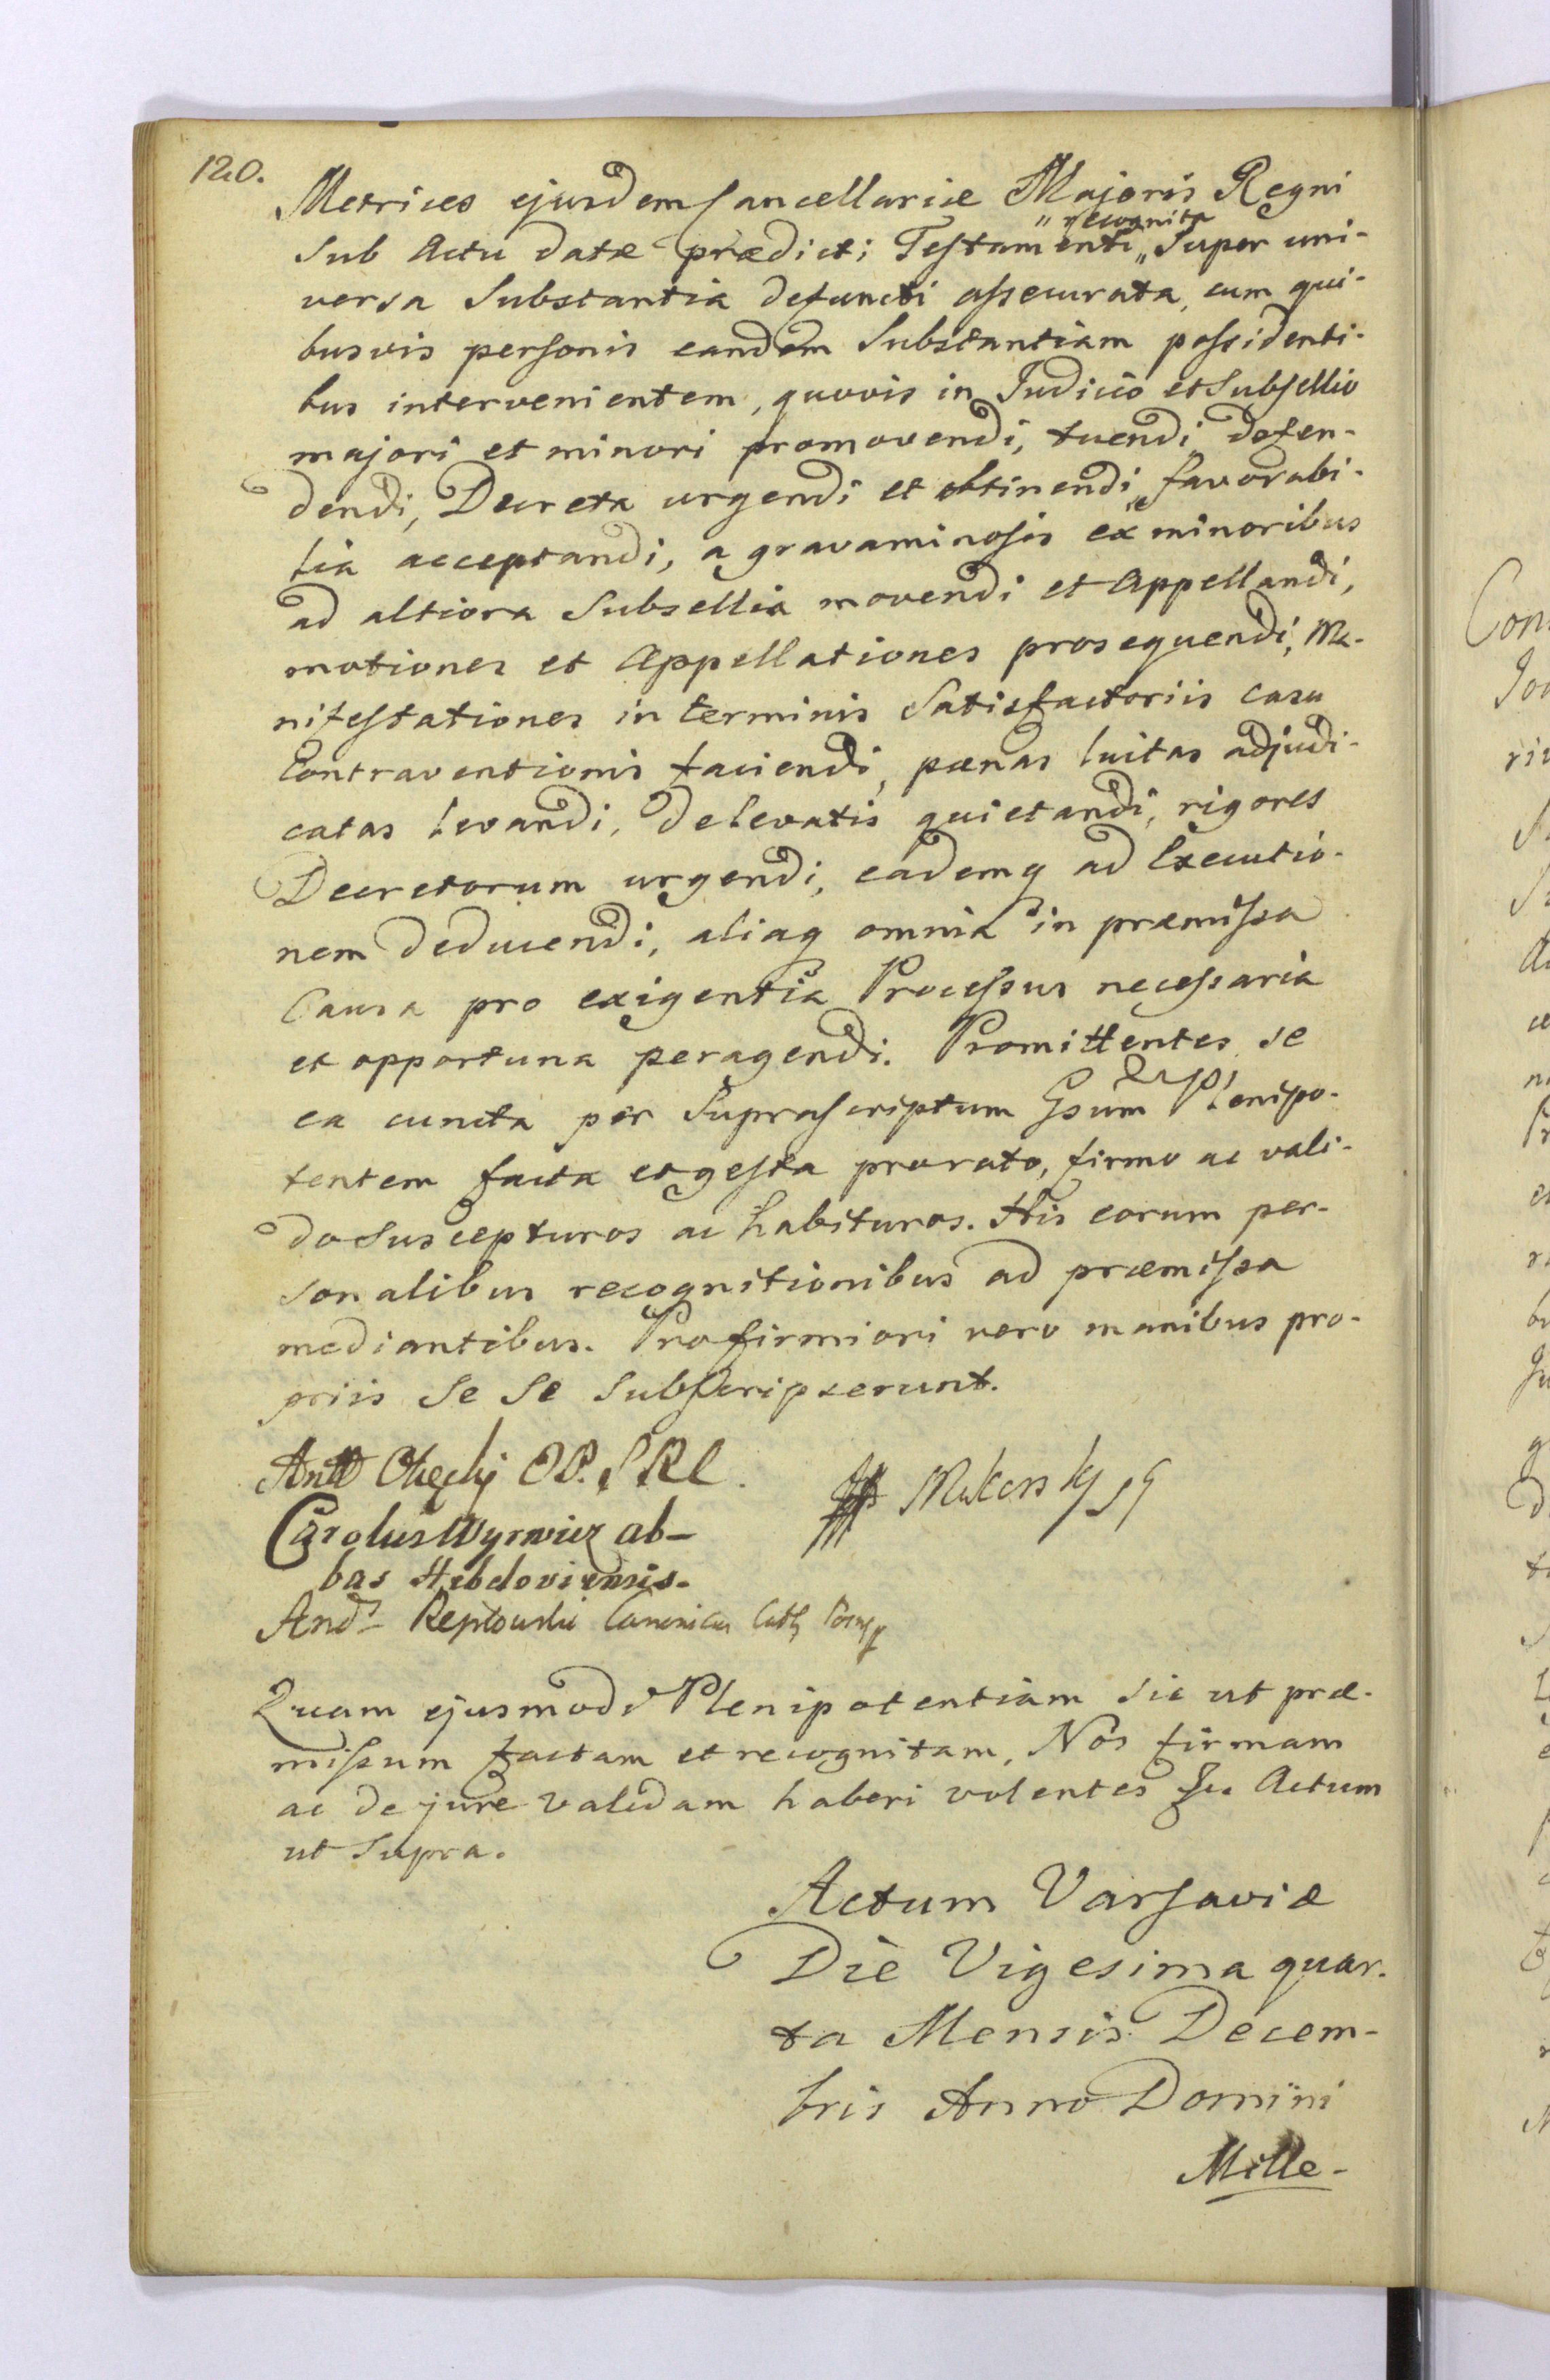 120.
Metrices ejusdem Cancellariæ Majoris Regni
" recognita
Sub Actu datæ prædicti Testamenti „ Super uni-
versa Substantia defuncti assecurata, cum qui-
busvis personis eandem Substantiam possidenti-
bus intervenientem, quovis in Judicio et Subsellio
majori et minori promovendi, tuendi, defen-
dendi, Decreta urgendi et obtinendi, favorabi-
lia acceptandi, a gravaminosis ex minoribus
ad altiora Subsellia movendi et Appellandi,
motiones et Appellationes prosequendi, Ma-
nifestationes in terminis Satisfactoriis casu
Contraventionis faciendi, pœnas luitas adjudi-
catas levandi, de levatis quietandi, rigores
Decretorum urgendi, eademq ad Executio-
nem deducendi, aliaq omnia in præmissa
Causa pro exigentia Processus necessaria
et opportuna peragendi. Promittentes se
ea cuncta per Suprascriptum Gsum Plenipo-
tentem facta et gesta pro rato, firmo ac vali-
do Suscepturos ac habituros. His eorum per-
sonalibus recognitionibus ad præmissa
mediantibus. Pro firmiori vero manibus pro-
priis Se Se Subscripserunt.
Carolus Wyrwicz ab-
bas Hebdoviensis.
And. Reptowski Canonicus Cath
Quam ejusmodi Plenipotentiam sic ut præ-
missum factam et recognitam, Nos firmam
ac de jure validam haberi volentes Actum
ut Supra.
Actum Varsaviæ
Die Vigesima quar-
ta Mensis Decem-
bris Anno Domini
Mille-